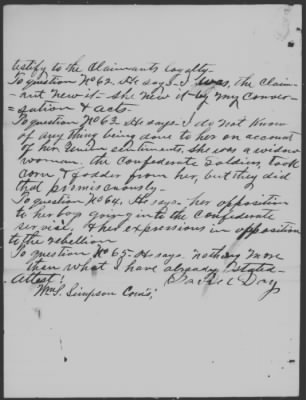 testify to the Claimants loyalty-
To question No 62. He says- I was, the Claim-
ant new it- she new it by my conver-
=sation & acts-
To question No 63. He says- I do not know
of any thing being done to her on account
of her Union sentiments, she was a widow
woman, the Confederate Soldiers, took
corn & fodder from her, but they did
that promiscuously-
To question No 64. He says- her opposition
to her boys going into the Confederate
service, & her expressions in opposition
to the rebellion
To question No 65- He says- nothing more
than what I have already stated-
Attest!
Wm S. Simpson Com's;